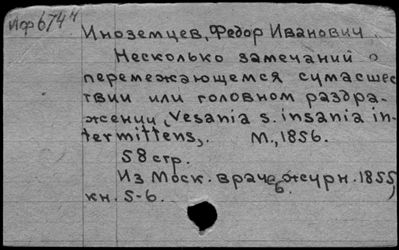 Иф674ч
Иноземцев, Федор Иванович.
Несколько замечаний о
перемежающемся сумасшес
твии или головном раздра-
жении „Vesania s. insania in-
termittens„. М., 1856.
58 стр.
Из Моск. врачеб. журн. 1855,
кн. 5-6.